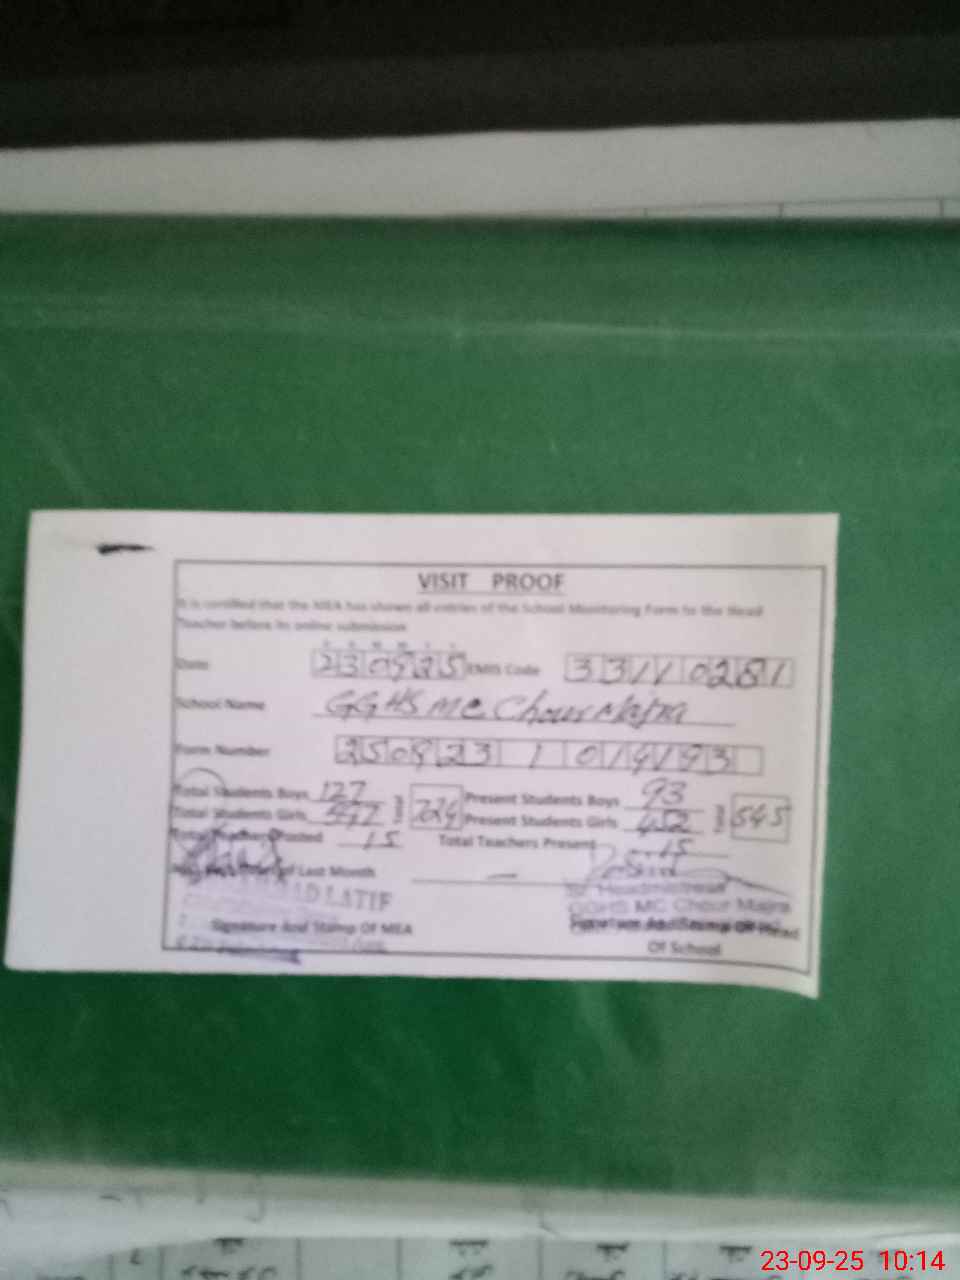 VISIT PROOF
It is certified that the MEA has shown all entries of the School Monitoring Form to the Head
Teacher before its online submission
Date 230925 EMIS Code 33110281
School Name GGHS MC Chour Majra
Form Number 250923 1 014193
Total Students Boys 127 Present Students Boys 93
Total Students Girls 597 724 Present Students Girls 452 545
Posted 15 Total Teachers Present 15
of Last Month —
LATIF
Sr. Headmistress
GGHS MC Chour Majra
Signature And Stamp Of MEA Signature And Stamp Of Head
Of School
23-09-25 10:14